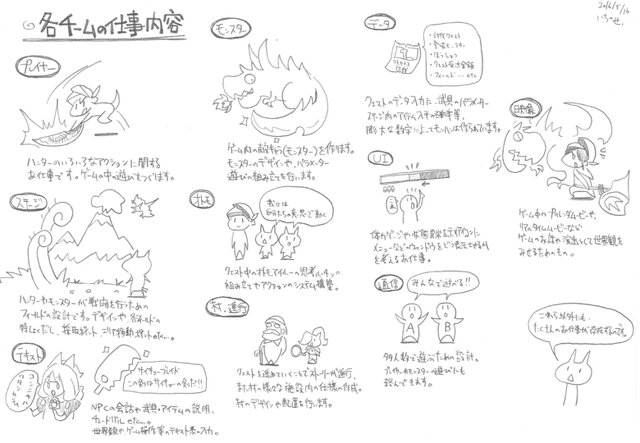 各チームの仕事内容
2016/5/16
いちのせ
プレイヤー
ハンターのいろいろなアクションに関する
お仕事です。ゲームの中の遊びをつくります。
モンスター
ゲーム内の敵キャラ(モンスター)を作ります。
モンスターのデザインや、パラメーター
遊びの組み立てを行います。
データ
クエストのデータ入力に、武具のパラメーター
ステージ内のアイテム
膨大な数字によってモンハンは作られています。
映像
ゲーム中のプリレンダムービーや、
リアルタイムムービーなど
ゲームのお話や演出として世界観を
みせるためのもの。
UI
体力ゲージや
メニューなどのウィンドウをどう表示させるか
を考えるお仕事。
ステージ
ハンターやモンスターが戦闘を行うための
フィールドの設計です。デザインや各フィールドの
特しょくだし、採取ポイント、エリア移動、ポイントetc...
オトモ
我々は
自分たちの意思で動く
クエスト中のオトモアイルーの思考ルーチンの
組み立てやアクションのシステム構築。
村、進行
クエストを進めていくことでストーリーが進行、
また村の様々な施設内の仕様の作成。
村のデザインや配置も行います。
通信
みんなで遊べる!!
A
B
多人数で遊ぶための設計。
プレイヤー、モンスターの遊びにも
絡んできます。
テキスト
コンニチワ
ワタシ
サイキョーブレイド
この剣はサイキョーの剣だ!!
NPCの会話や武具・アイテムの説明、
チュートリアルetc...
世界観やゲーム操作等のテキスト系の入力。
これら以外にも
たくさんのお仕事が存在するのです。